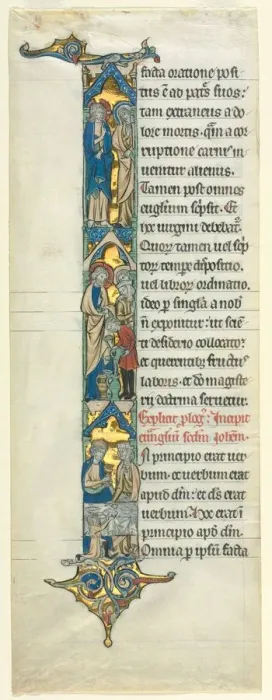 facta oratione posi
tus ē ad patres suos:
tam extraneus a do
lore mortis. qm̄ a cor
ruptione carnis in
uenitur alienus.
Tamen post omnes
euglium scpsit. Et
hoc uirgini debebat̄.
Quor tamen uel scp
tor tempe dispositio.
uel libror ordinatio.
ideo p singla a nob
n̄ exponitur: ut sciē
ti desiderio collocato:
et querentibȝ fructus
laboris. et do magiste
rij doctrina seruetur.
Explicit plogꝰ: Incipit
euuglium scdm iohem.
N principio erat uer
bum. et uerbum erat
apud dm̄: et ds̄ erat
uerbum. Hoc erat ī
principio apd dm̄.
Omnia p ipsū facta